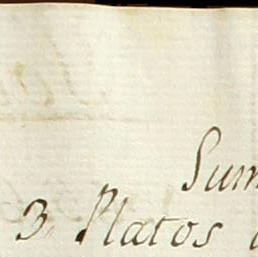 Sum
3, Platos